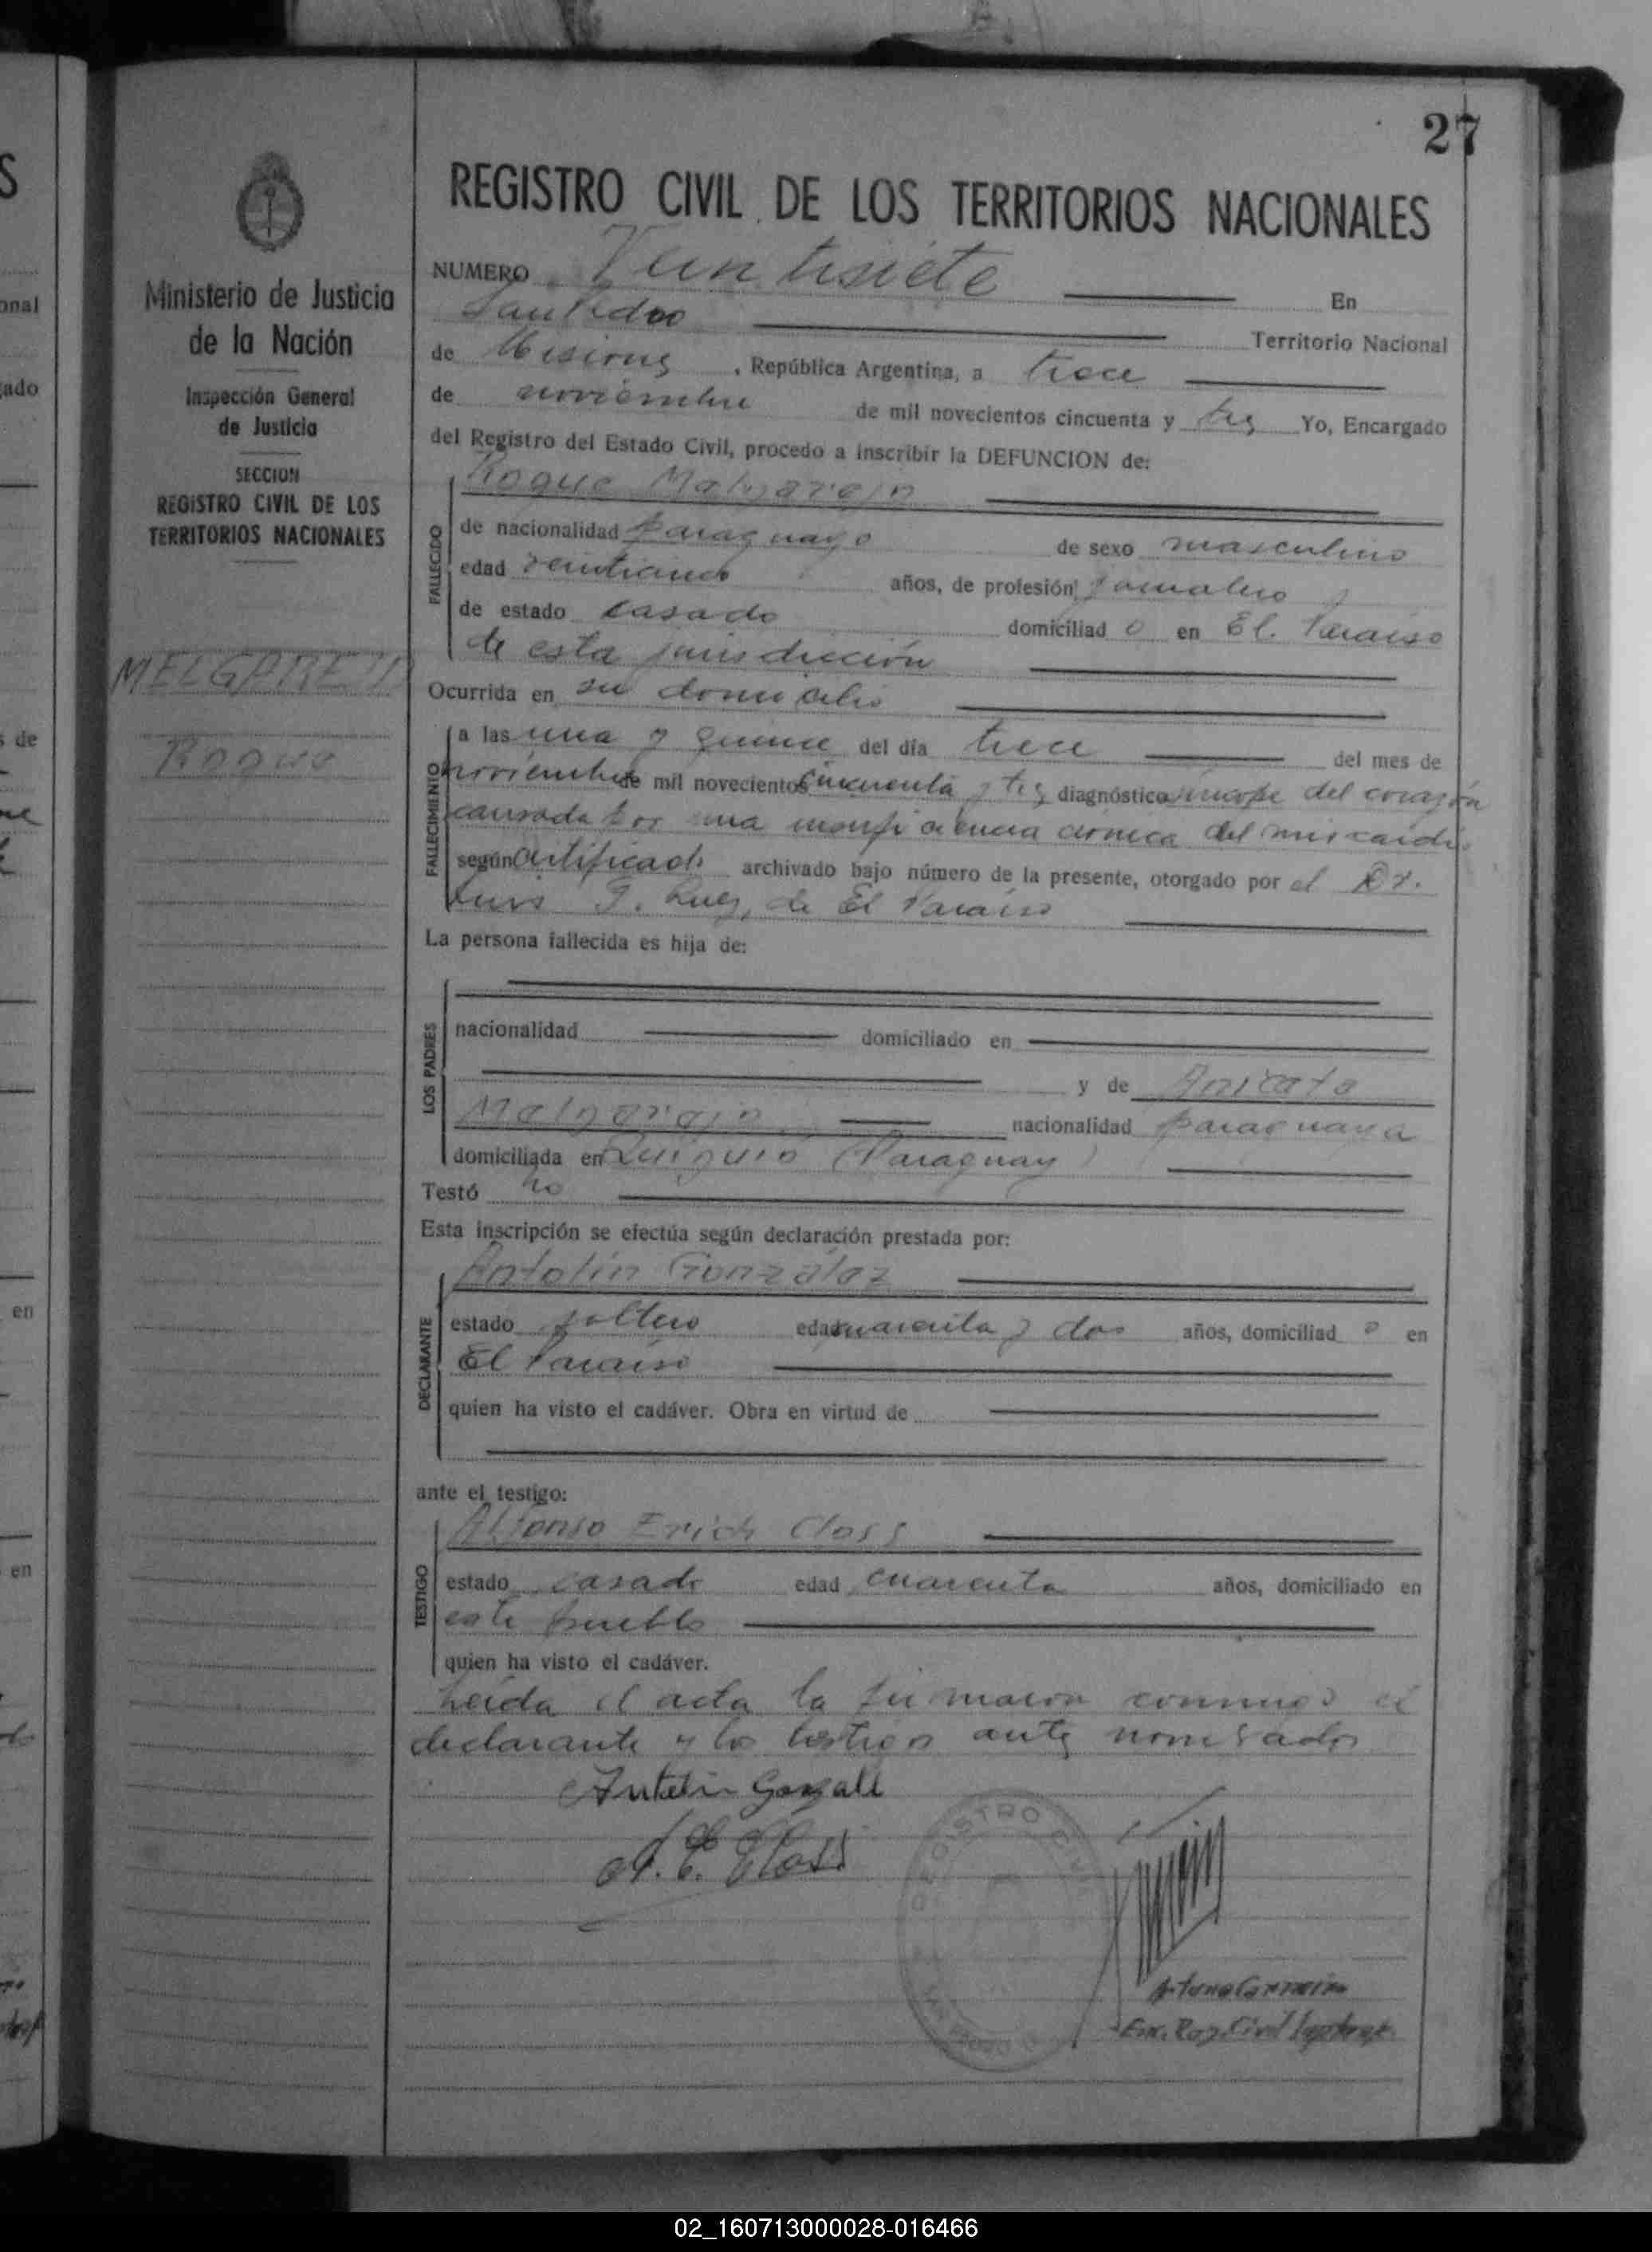 27
REGISTRO CIVIL DE LOS TERRITORIOS NACIONALES
Ministerio de Justicia
de la Nación
Inspección General
de Justicia
SECCION
REGISTRO CIVIL DE LOS
TERRITORIOS NACIONALES
MELGAREJO
Roque
NUMERO Veintisiete En
San Pedro Territorio Nacional
de Misiones, República Argentina, a trece
de noviembre de mil novecientos cincuenta y tres Yo, Encargado
del Registro del Estado Civil, procedo a inscribir la DEFUNCION de:
Roque Melgarejo
FALLECIDO
de nacionalidad paraguayo de sexo masculino
edad años, de profesión jornalero
de estado casado domiciliado en El Paraiso
de esta jurisdicción
Ocurrida en su domicilio
FALLECIMIENTO
a las una y quince del día trece del mes de
noviembre de mil novecientos cincuenta y tres diagnóstico sincope del corazón
causada por una insuficiencia cronica del miocardio
según certificado archivado bajo número de la presente, otorgado por el Dr.
Luis de El Paraiso
La persona fallecida es hija de:
LOS PADRES
nacionalidad domiciliado en
y de Aniceta
Melgarejo nacionalidad paraguaya
domiciliada en (Paraguay)
Testó no
Esta inscripción se efectúa según declaración prestada por:
Antolín González
DECLARANTE
estado soltero edad cuarenta y dos años, domiciliado en
El Paraiso
quien ha visto el cadáver. Obra en virtud de
ante el testigo:
Alfonso Erich Closs
TESTIGO
estado casado edad cuarenta años, domiciliado en
este pueblo
quien ha visto el cadáver.
Leida el acta la firmaron conmigo el
declarante y los testigos antes nombrados
Antolin Gonzall
A. E. Closs
REGISTRO CIVIL
Enc. Reg. Civil
02_160713000028-016466